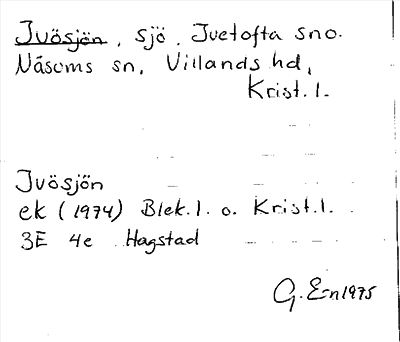 Ivösjön, sjö, Ivetofta sno.
Näsums sn, Villands hd,
Krist. l.
Ivösjön
ek (1974) Blek. l. o. Krist. l.
3E 4e Hagstad
G. E-n 1975